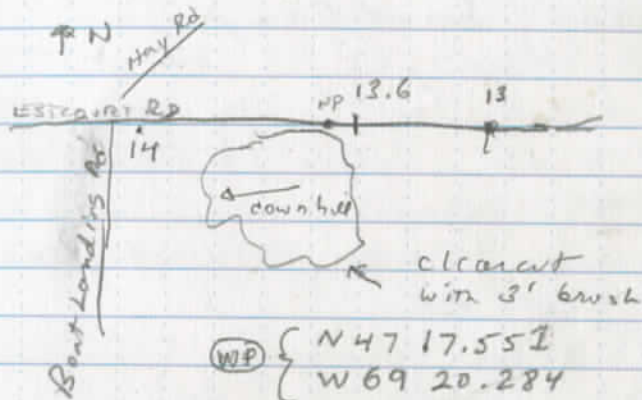 N
Hay Rd
ESTCOURT RD
WP 13.6 13
14
downhill
Boat Landing Rd
clearcut
with 3' brush
WP { N 47 17.551
W 69 20.284